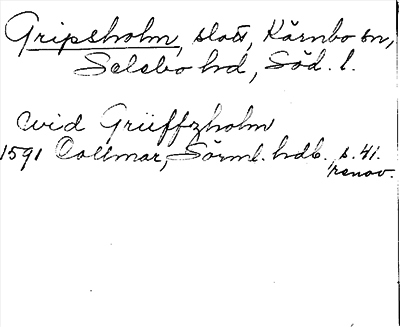 Gripsholm, slott, Kärnbo sn,
Selebo hd, Söd. l.
wid Grüffzholm
1591 Collmar, Sörml. hdl. s. 41.
renov.